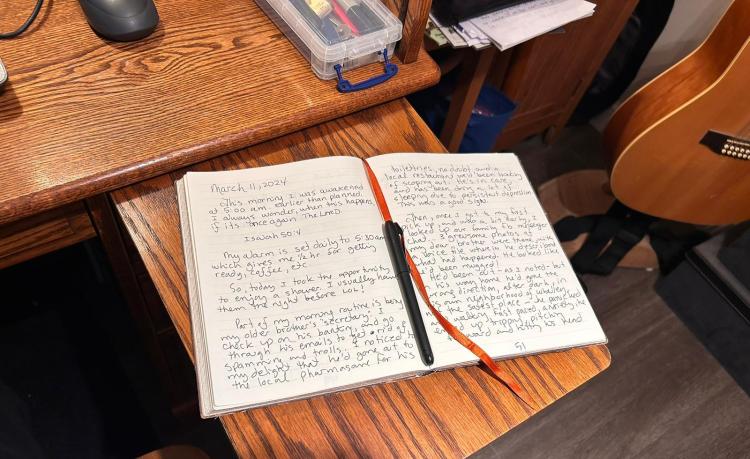 March 11, 2024
This morning I was awakened
at 5:00 am earlier than planned.
I always wonder, when this happens
if its once again The LORD
Isaiah 50:4
My alarm is set daily to 5:30 am
which gives me 1/2 hr for getting
ready, coffee, etc
So, today I took the opportunity
to enjoy a shower. I usually have
them the night before work!
Part of my morning routine is being
my older brother's "secretary". I
check up on his banking, and go
through his emails to get rid of
spamming and trolls. I noticed to
my delight that he'd gone out to
the local for his
toiletries, no doubt, and a
local restaurant we'd been
of scoping out. He's in care,
and has been doing a lot of
sleeping due to persistent depression
This was a good sign.
Then, once I got to my first
pick up and was a big early, I
looked up our family Fb messenger
chat. 3 gruesome photos of
my dear brother were there, with
a voice file where he described
what had happened. He looked like
he'd been mugged!
He'd been out - as I noted - but
on his way home he'd gone the
wrong direction, after dark, in
his own neighborhood of Whalley,
not the safest place - he panicked
and walking fast paced, anxiety, he
ended up tripping, pitching
forward and his head
51